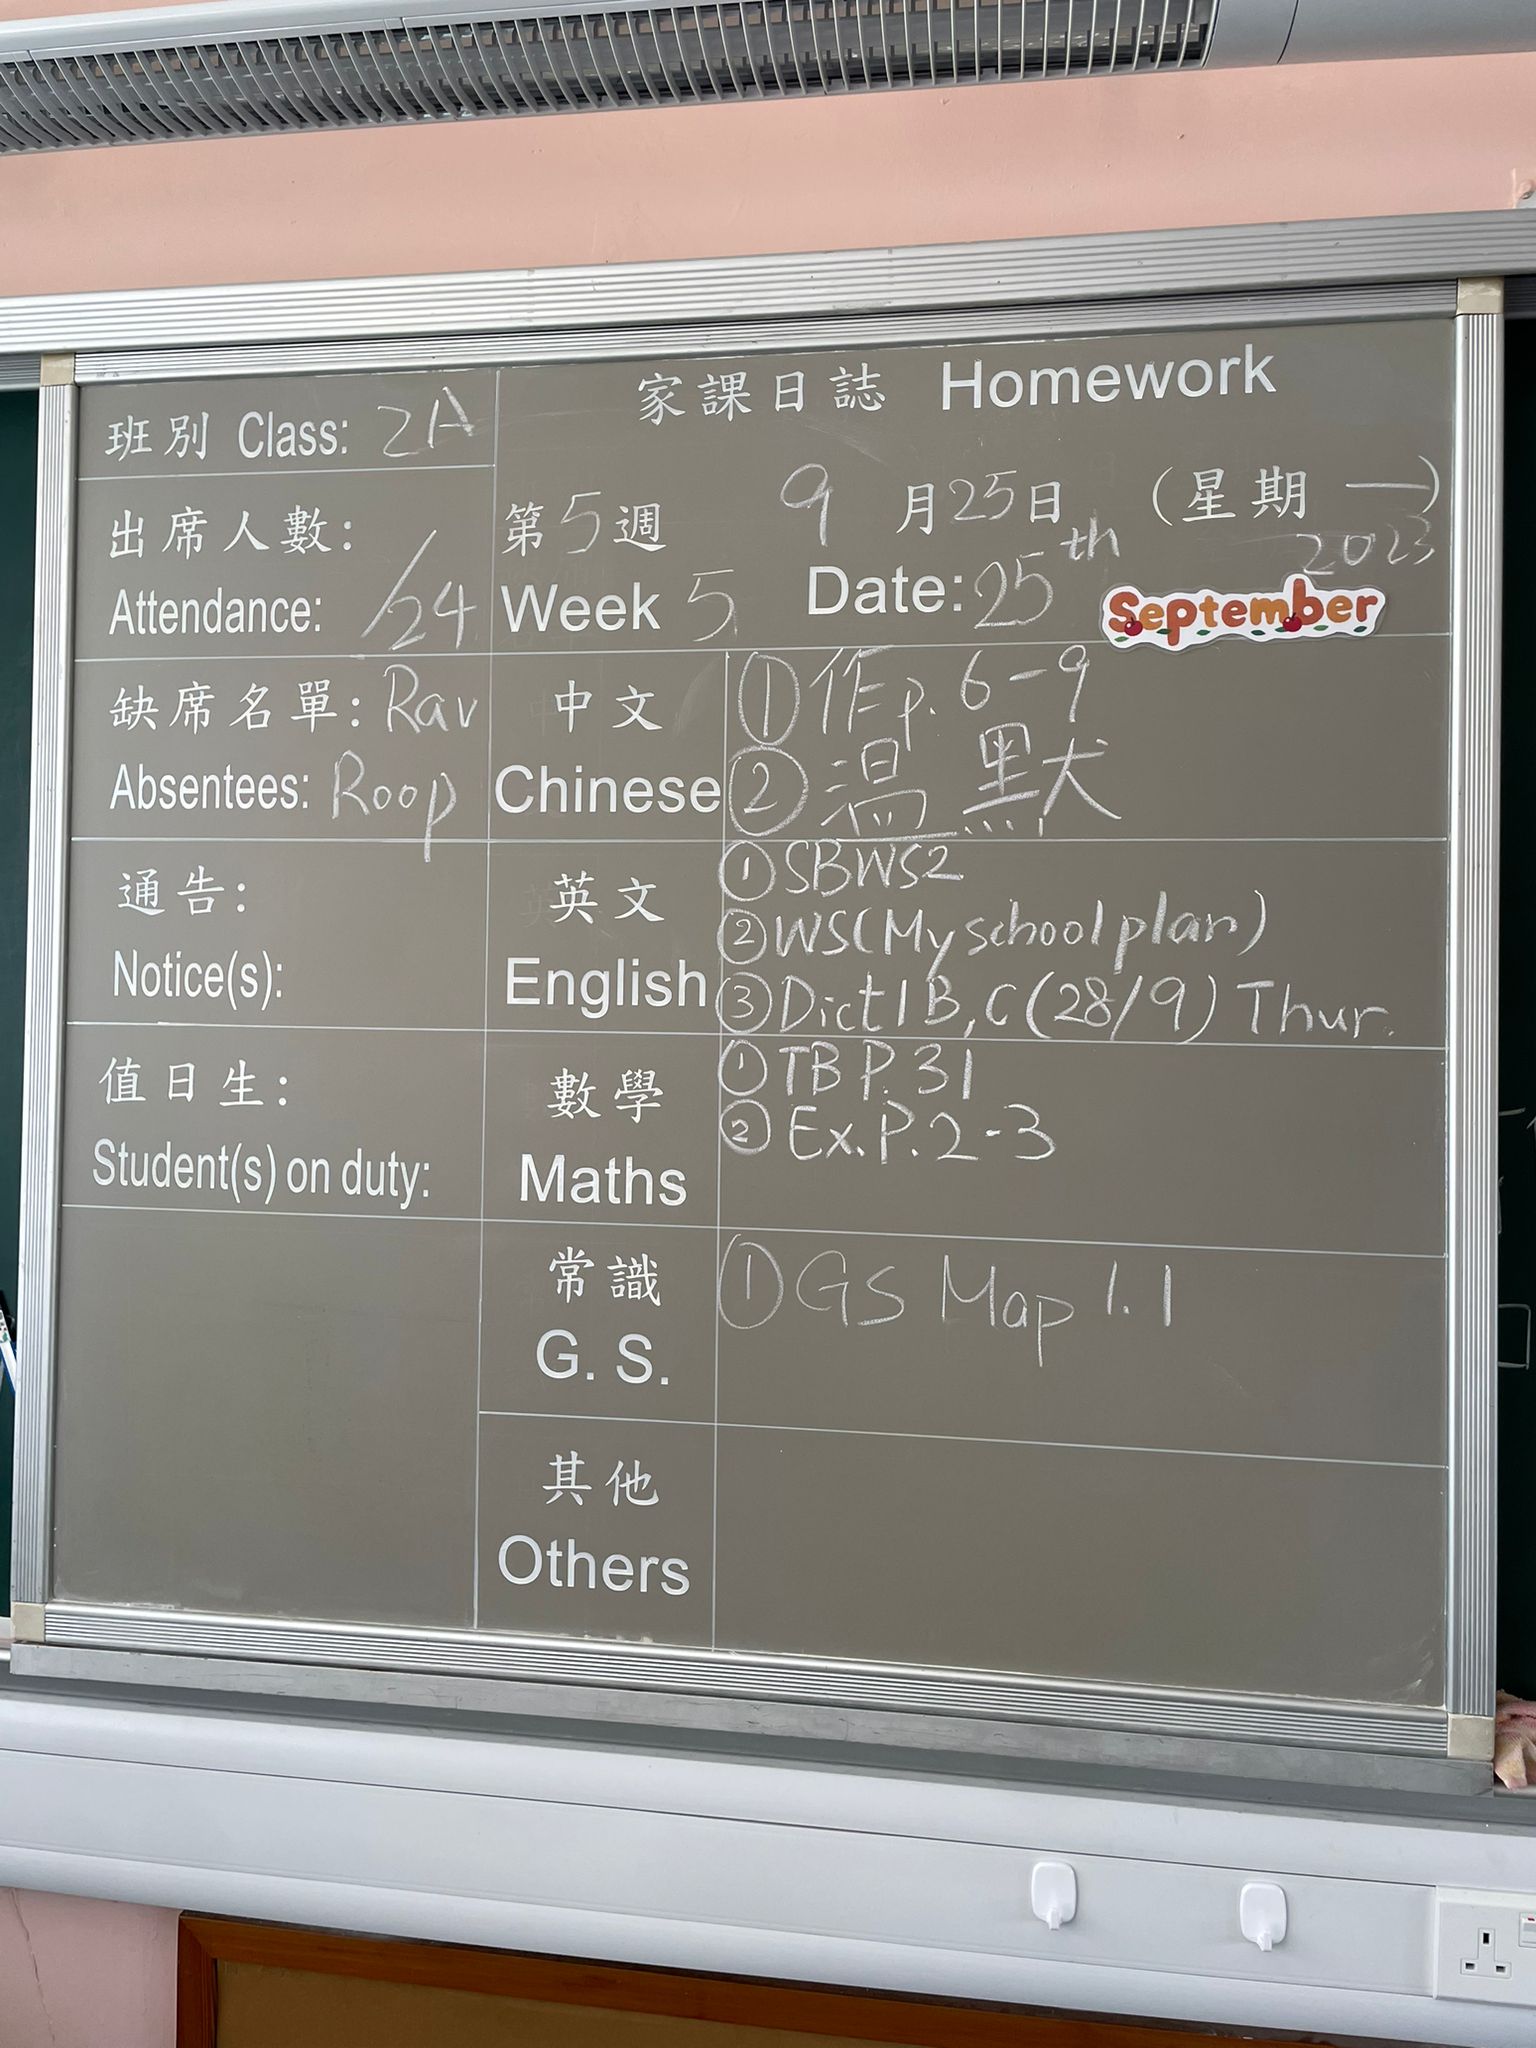 家課日誌 Homework
班別 Class: 2A
出席人數:
Attendance: /24
第5週 9月25日 (星期一)
Week 5 Date: 25th September 2023
缺席名單: Rav
Absentees: Roop
中文
Chinese
① 作p. 6-9
② 溫默
通告:
Notice(s):
英文
English
① SBWS2
② WS(My school plan)
③ Dict 1B, C (28/9) Thur.
值日生:
Student(s) on duty:
數學
Maths
① TB P.31
② Ex.P.2-3
常識
G. S.
① GS Map 1.1
其他
Others